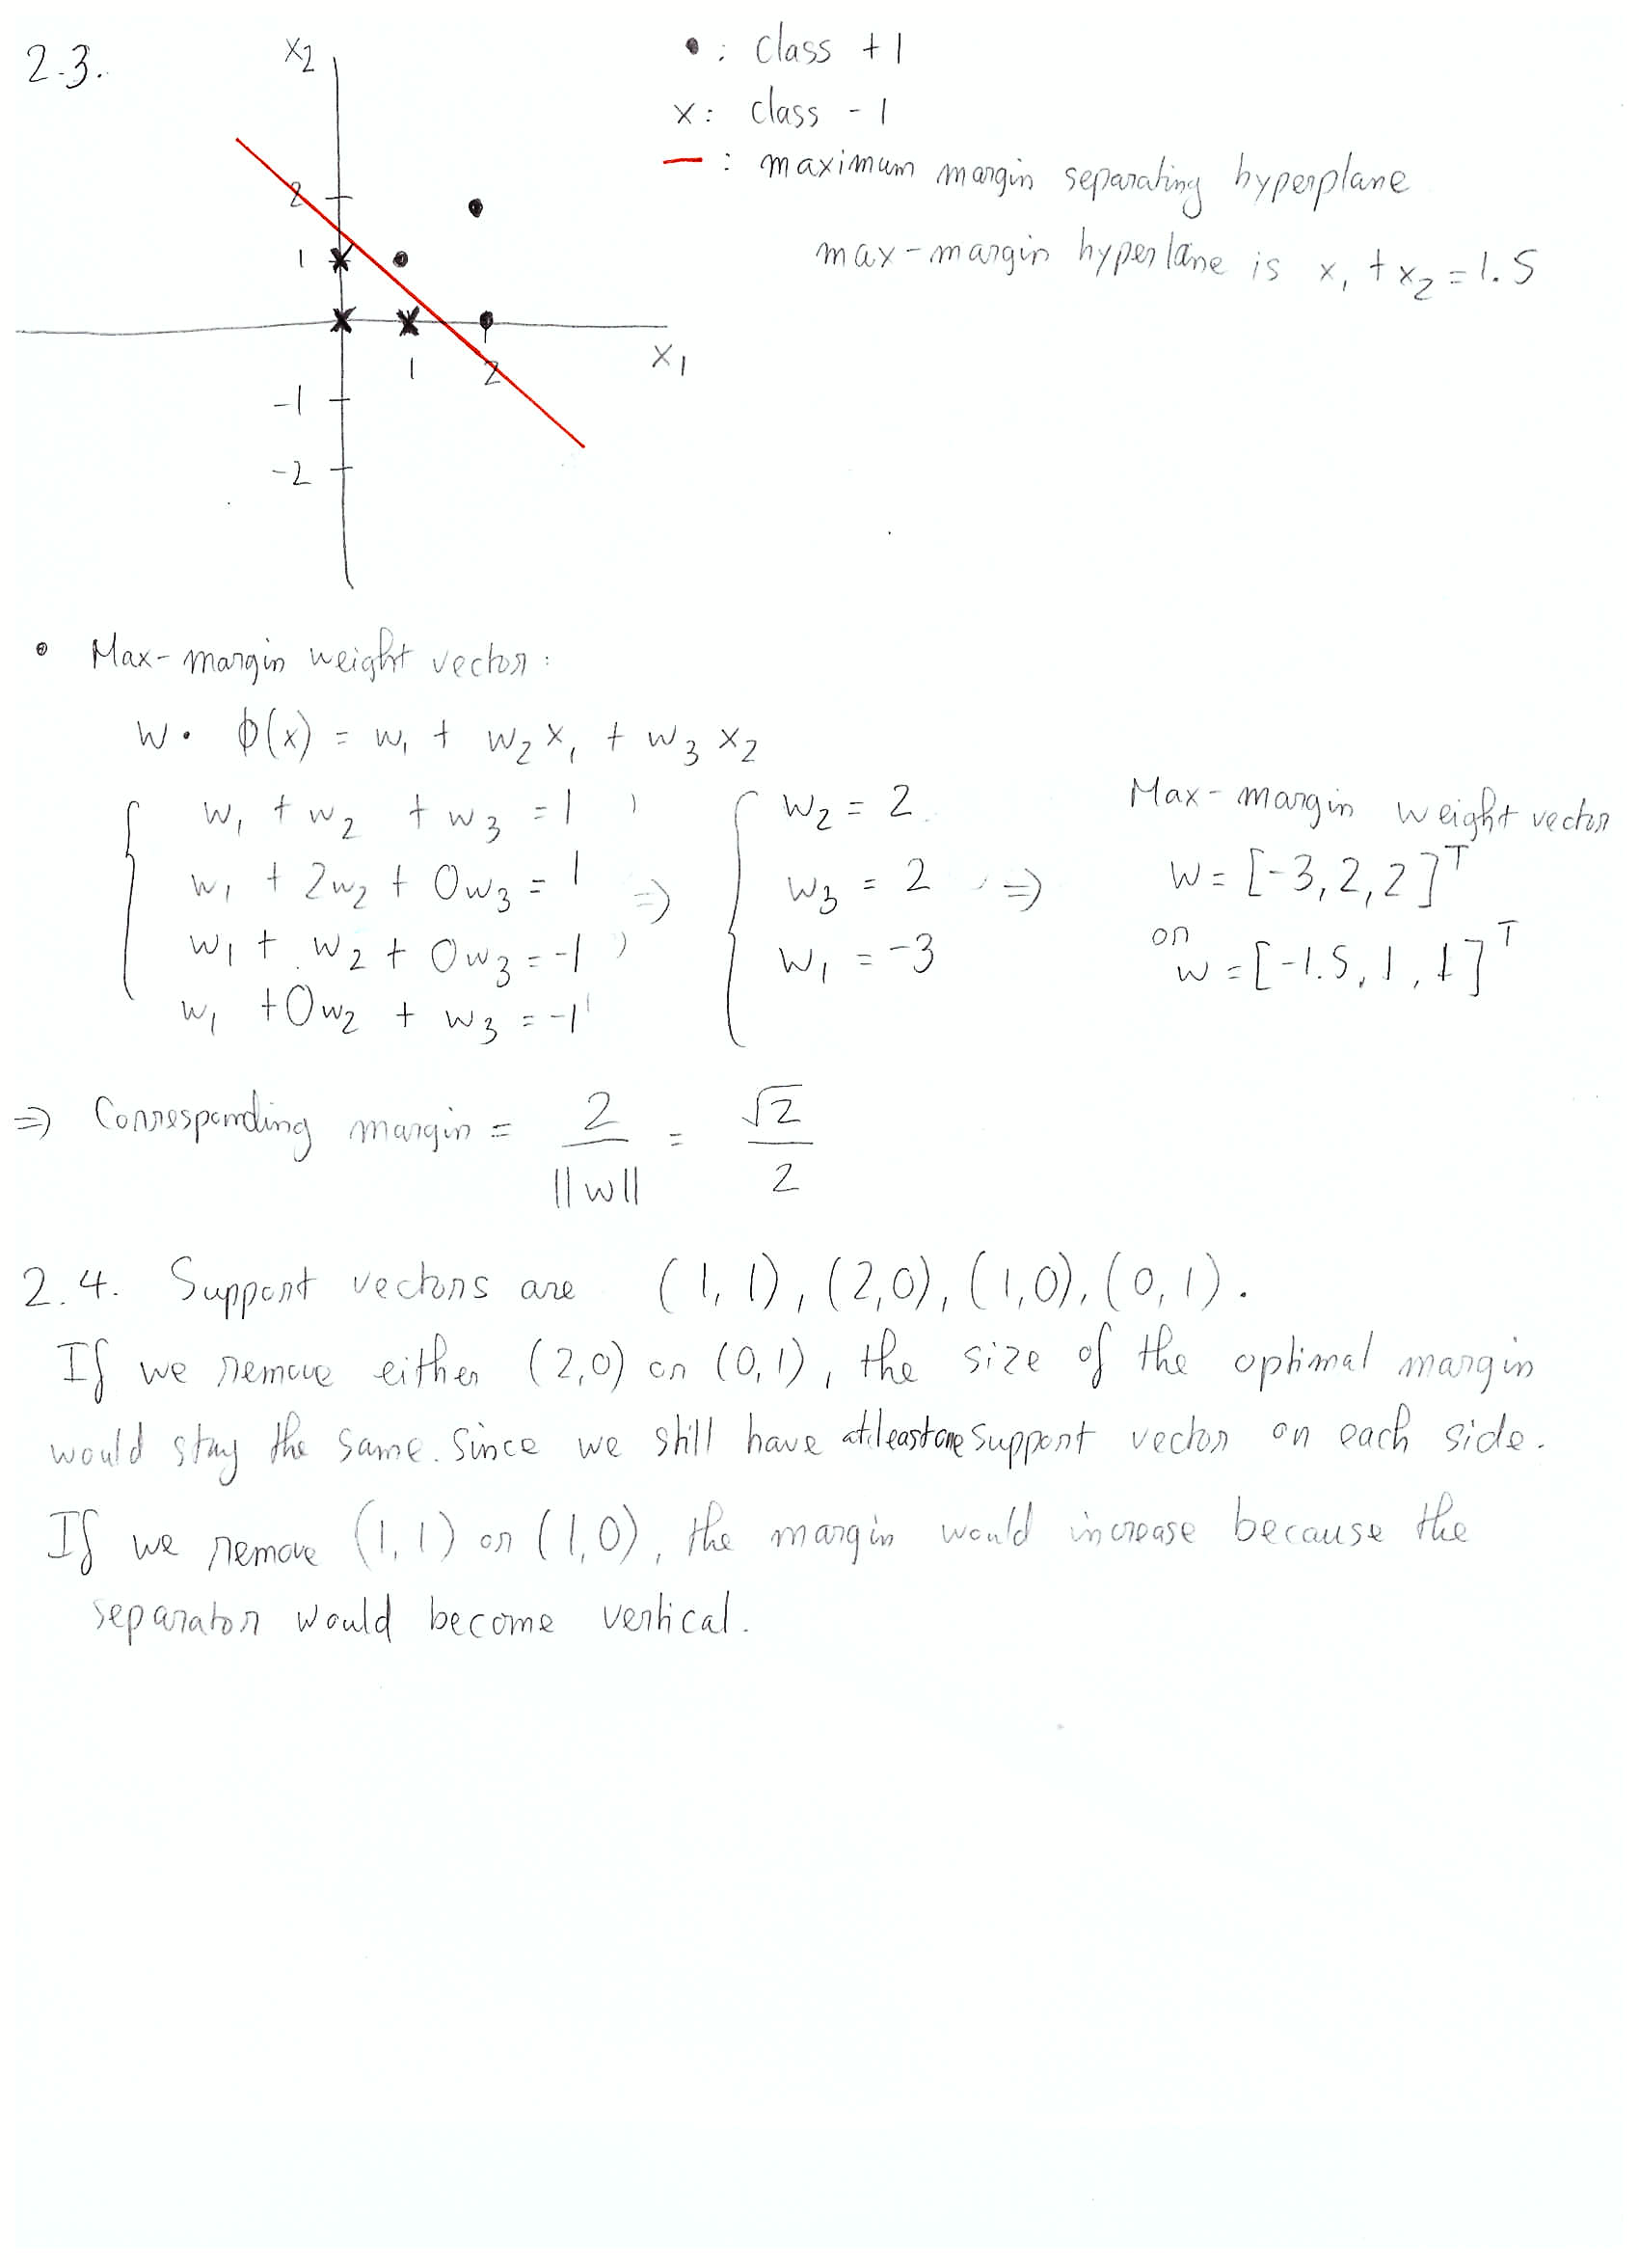 2.3.
x2
• : class +1
x : class -1
— : maximum margin separating hyperplane
max-margin hyperlane is x₁ + x₂ = 1.5
2
1
1
2
x1
-1
-2
• Max-margin weight vector:
w · ϕ(x) = w₁ + w₂ x₁ + w₃ x₂
w₁ + w₂ + w₃ = 1
w₁ + 2w₂ + 0w₃ = 1
w₁ + w₂ + 0w₃ = -1
w₁ + 0w₂ + w₃ = -1
⇒
w₂ = 2
w₃ = 2
w₁ = -3
⇒
Max-margin weight vector
w = [-3, 2, 2]ᵀ
or
w = [-1.5, 1, 1]ᵀ
⇒ Corresponding margin = 2/||w|| = √2/2
2.4. Support vectors are (1, 1), (2,0), (1,0), (0,1).
If we remove either (2,0) or (0,1), the size of the optimal margin
would stay the same. Since we still have at least one support vector on each side.
If we remove (1,1) or (1,0), the margin would increase because the
separator would become vertical.